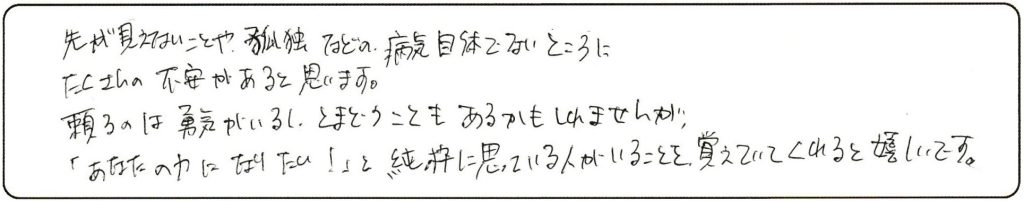 先が見えないことや、孤独などの、病気自体でないところに
たくさんの不安があると思います。
頼るのは勇気がいるし、とまどうこともあるかもしれませんが、
「あなたの力になりたい！」と純粋に思っている人がいることを、覚えていてくれると嬉しいです。